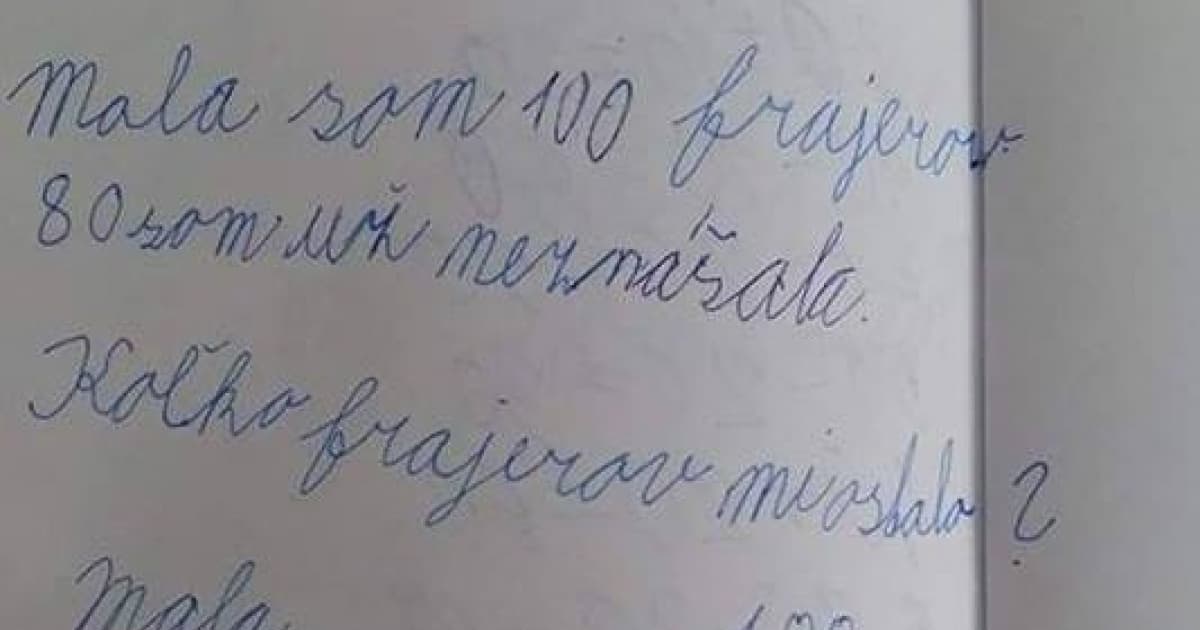 Mala som 100 frajerov
80 som už neznášala.
Koľko frajerov mi ostalo?
Mala 100